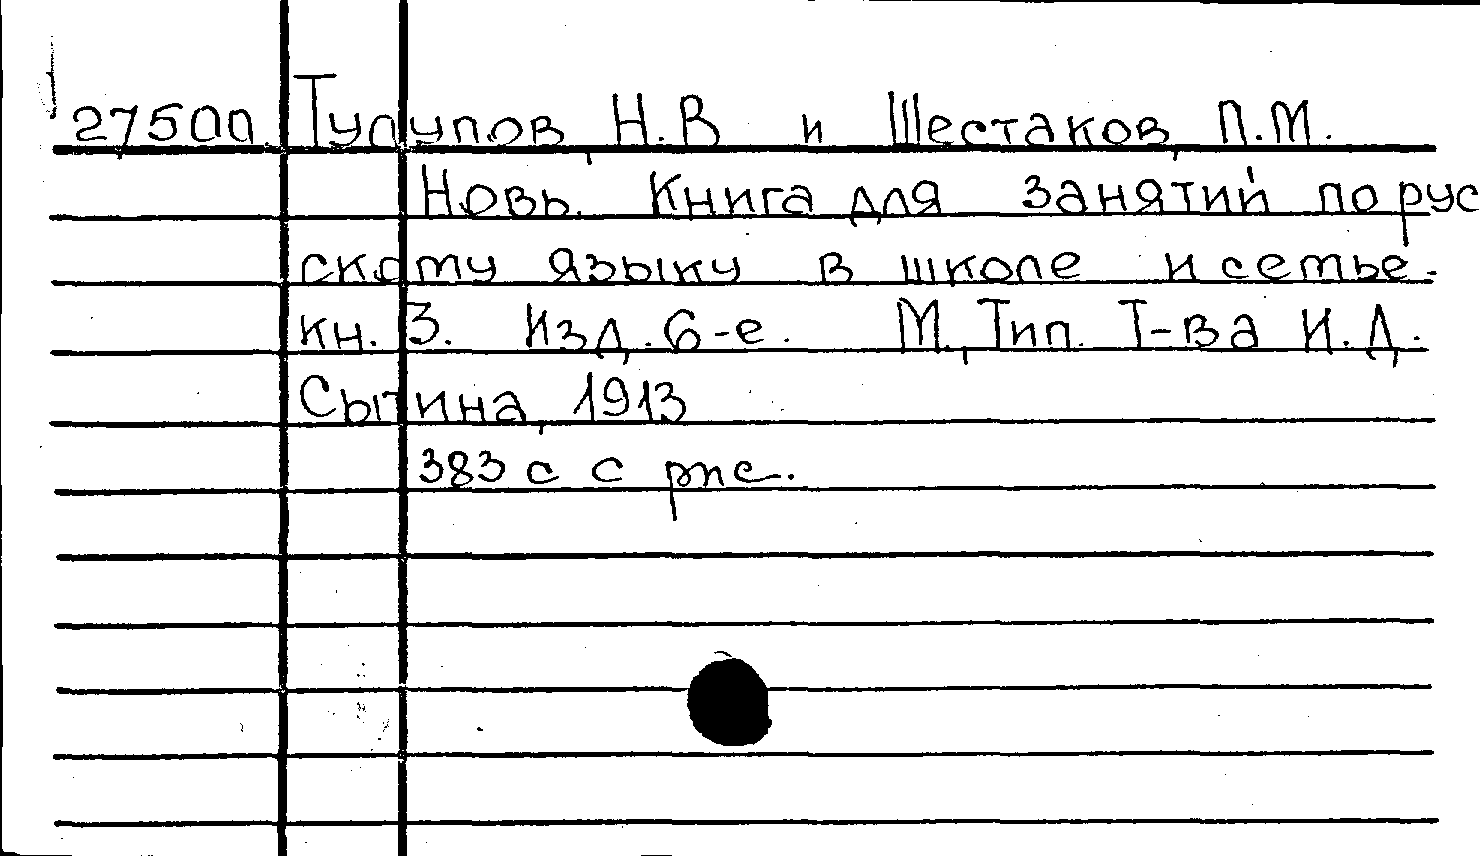 27500 Тулупов, Н.В и Шестаков, П.М.
Новь. Книга для занятий по рус
скому языку в школе и семье.
кн. 3. Изд. 6-е. М., Тип. Т-ва И.Д.
Сытина, 1913
383 с с рис.